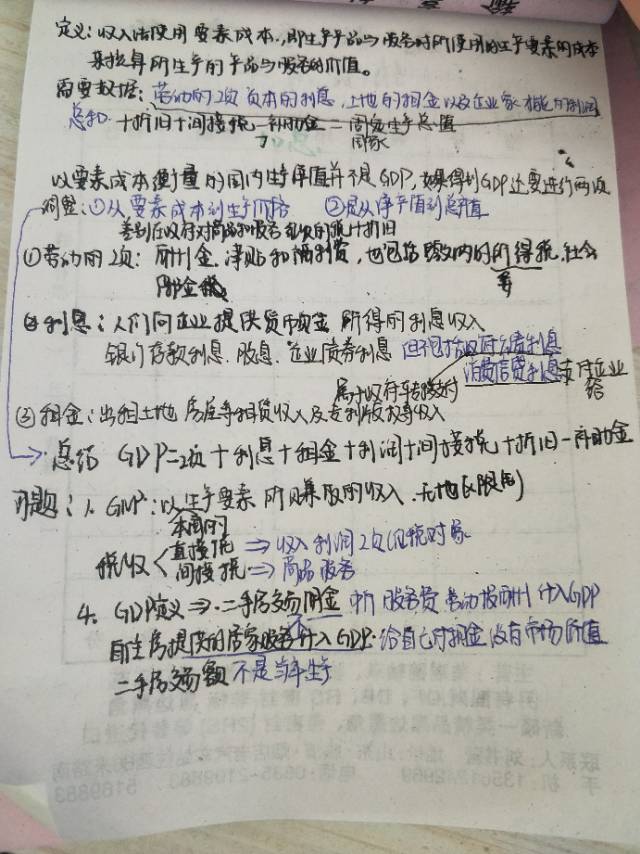 定义:收入法使用要素成本,即生产产品与服务时所使用的生产要素的成本
来核算所生产的产品与服务的价值。
需要数据:劳动的工资 资本的利息,土地的租金以及企业家才能的利润
总和 +折旧+间接税-补助金=国家生产总值
国家
以要素成本衡量的国内生产净值并不是GDP,如果得到GDP还要进行两项
调整:①从要素成本到生产价格 ②是从净产值到总产值
差别在政府对商品和服务征收的税 +折旧
①劳动的工资:酬金、津贴和福利费,也包括缴纳的所得税,社会
保险税 等
②利息:人们向企业提供货币资金 所得的利息收入
银行存款利息、股息、企业债券利息 但不包括政府公债利息
消费信贷利息 支付企业
给
属于政府转移支付
③租金:出租土地 房屋等租赁收入及专利版权等收入
总结 GDP=工资+利息+租金+利润+间接税+折旧-补助金
问题:1. GNP:以生产要素 所赚取的收入.无地区限制)
本国的
税收 直接税 ⇒收入 利润 工资 征税对象
间接税 ⇒商品 服务
4. GDP定义⇒.二手房交易佣金 中介服务费 劳动报酬 计入GDP
自住房提供的居家服务不计入GDP.给自己付租金 没有市场价值
二手房交易额 不是当年生产